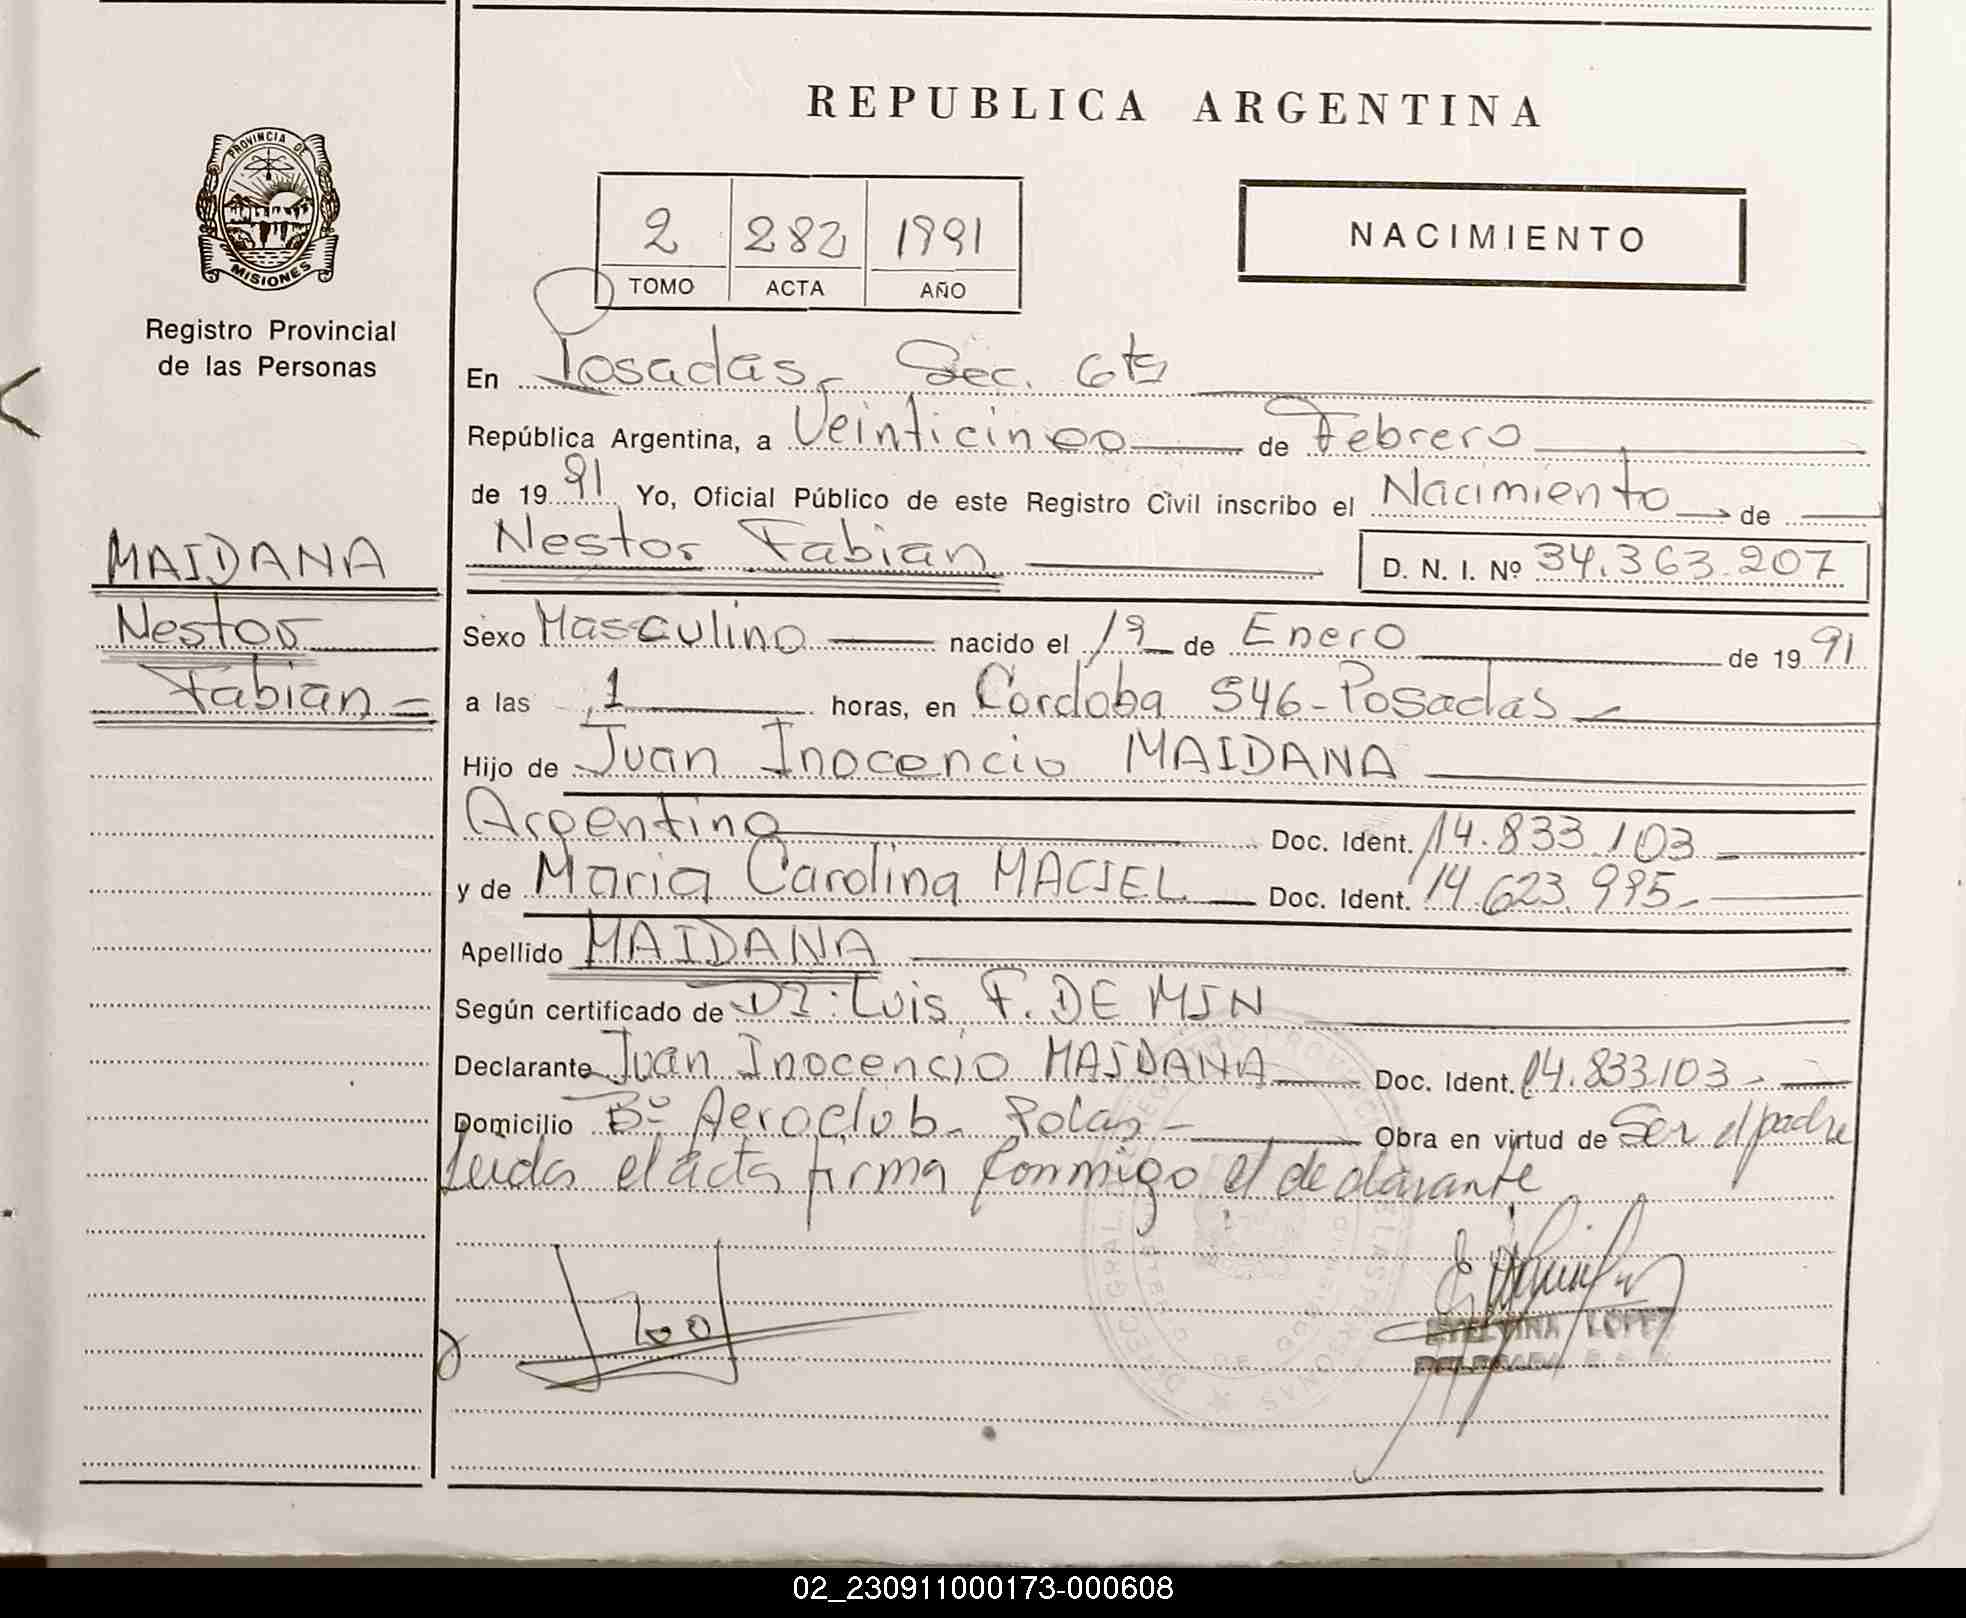 REPUBLICA ARGENTINA
PROVINCIA DE
MISIONES
Registro Provincial
de las Personas
2 282 1991
TOMO ACTA AÑO
NACIMIENTO
En Posadas, Sec. 6ta
República Argentina, a Veinticinco de Febrero
de 1991 Yo, Oficial Público de este Registro Civil inscribo el Nacimiento de
MAIDANA
Nestor
Fabian
Nestor Fabian D. N. I. Nº 34.363.207
Sexo Masculino nacido el 19 de Enero de 1991
a las 1 horas, en Cordoba 546-Posadas
Hijo de Juan Inocencio MAIDANA
Argentino Doc. Ident. 14.833.103
y de Maria Carolina MACIEL Doc. Ident. 14.623.995
Apellido MAIDANA
Según certificado de Dr: Luis F. DE MIN
Declarante Juan Inocencio MAIDANA Doc. Ident. 14.833.103
Domicilio Bº Aeroclub. Pdas Obra en virtud de Ser el padre
Leida el acta firma conmigo el declarante
ETELVINA LOPEZ
02_230911000173-000608